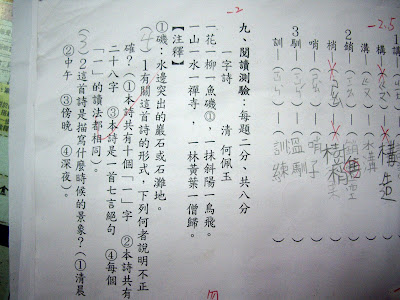 -2.5
講
構 構造
溝 水溝
2 銷
梢 樹梢
哨 哨子
3 馴 溫馴
訓 訓練
-2
九、閱讀測驗:每題二分、共八分
一字詩 清 何佩玉
一花一柳一魚磯①,一抹斜陽一鳥飛。
一山一水一禪寺,一林黃葉一僧歸。
【注釋】
①磯:水邊突出的巖石或石灘地。
(4)1有關這首詩的形式,下列何者說明不正
確?(①本詩共有十個「一」字 ②本詩共有
二十八字 ③本詩是一首七言絕句 ④每個
「一」的讀法都相同)。
(3)2這首詩是描寫什麼時候的景象?(①清晨
②中午 ③傍晚 ④深夜)。